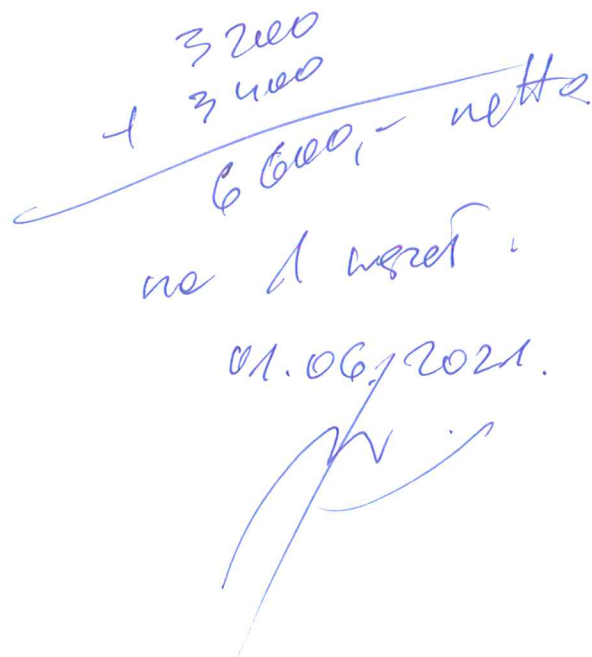 3200
+ 3400
6600,- netto
na 1 
01.06.2021.